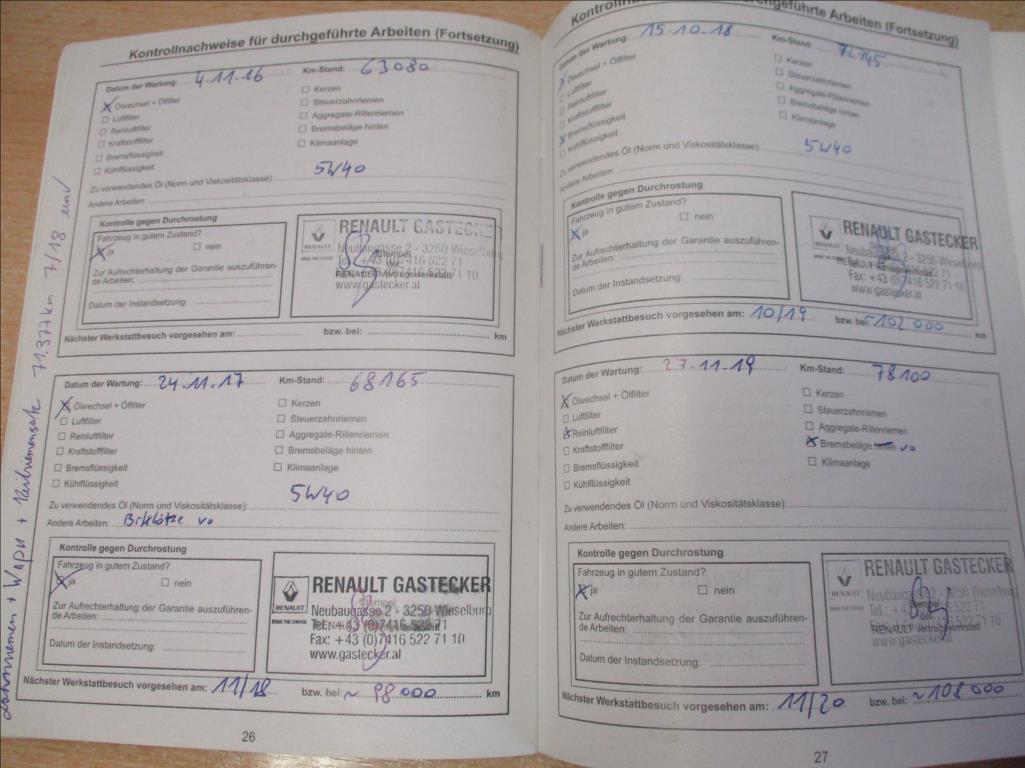 Kontrollnachweise für durchgeführte Arbeiten (Fortsetzung)
Datum der Wartung: 4.11.16 Km-Stand: 63080
Ölwechsel + Ölfilter
Luftfilter
Reinluftfilter
Kraftstofffilter
Bremsflüssigkeit
Kühlflüssigkeit
Kerzen
Steuerzahnriemen
Aggregate-Rillenriemen
Bremsbeläge hinten
Klimaanlage
5W40
Zu verwendendes Öl (Norm und Viskositätsklasse):
Andere Arbeiten:
Kontrolle gegen Durchrostung
Fahrzeug in gutem Zustand?
ja nein
Zur Aufrechterhaltung der Garantie auszuführen-
de Arbeiten:
Datum der Instandsetzung:
RENAULT GASTECKER
Neubaugasse 2 - 3250 Wieselburg
Stempel
Tel.: +43 (0)7416 522 71
Fax: +43 (0)7416 522 71 10
RENAULT Vertragswerkstatt
www.gastecker.at
RENAULT
Nächster Werkstattbesuch vorgesehen am: bzw. bei: km
Datum der Wartung: 24.11.17 Km-Stand: 68165
Ölwechsel + Ölfilter
Luftfilter
Reinluftfilter
Kraftstofffilter
Bremsflüssigkeit
Kühlflüssigkeit
Kerzen
Steuerzahnriemen
Aggregate-Rillenriemen
Bremsbeläge hinten
Klimaanlage
5W40
Zu verwendendes Öl (Norm und Viskositätsklasse):
Andere Arbeiten: vo
Kontrolle gegen Durchrostung
Fahrzeug in gutem Zustand?
ja nein
Zur Aufrechterhaltung der Garantie auszuführen-
de Arbeiten:
Datum der Instandsetzung:
RENAULT GASTECKER
Neubaugasse 2 - 3250 Wieselburg
Stempel
Tel.: +43 (0)7416 522 71
Fax: +43 (0)7416 522 71 10
www.gastecker.at
RENAULT
Nächster Werkstattbesuch vorgesehen am: 11/18 bzw. bei: ~ 98 000 km
26
Zahnriemen + WaPu + 71.377 km 7/18
Kontrollnachweise für durchgeführte Arbeiten (Fortsetzung)
Datum der Wartung: 15.10.18 Km-Stand: 72745
Ölwechsel + Ölfilter
Luftfilter
Reinluftfilter
Kraftstofffilter
Bremsflüssigkeit
Kühlflüssigkeit
Kerzen
Steuerzahnriemen
Aggregate-Rillenriemen
Bremsbeläge hinten
Klimaanlage
5W40
Zu verwendendes Öl (Norm und Viskositätsklasse):
Andere Arbeiten:
Kontrolle gegen Durchrostung
Fahrzeug in gutem Zustand?
ja nein
Zur Aufrechterhaltung der Garantie auszuführen-
de Arbeiten:
Datum der Instandsetzung:
RENAULT GASTECKER
Neubaugasse 2 - 3250 Wieselburg
Stempel
Tel.: +43 (0)7416 522 71
Fax: +43 (0)7416 522 71 10
www.gastecker.at
RENAULT
Nächster Werkstattbesuch vorgesehen am: 10/19 bzw. bei: ~102 000 km
Datum der Wartung: 27.11.19 Km-Stand: 78100
Ölwechsel + Ölfilter
Luftfilter
Reinluftfilter
Kraftstofffilter
Bremsflüssigkeit
Kühlflüssigkeit
Kerzen
Steuerzahnriemen
Aggregate-Rillenriemen
Bremsbeläge hinten vo
Klimaanlage
Zu verwendendes Öl (Norm und Viskositätsklasse):
Andere Arbeiten:
Kontrolle gegen Durchrostung
Fahrzeug in gutem Zustand?
ja nein
Zur Aufrechterhaltung der Garantie auszuführen-
de Arbeiten:
Datum der Instandsetzung:
RENAULT GASTECKER
Neubaugasse 2 - 3250 Wieselburg
Stempel
Tel.: +43 (0)7416 522 71
Fax: +43 (0)7416 522 71 10
RENAULT Vertragswerkstatt
www.gastecker.at
Nächster Werkstattbesuch vorgesehen am: 11/20 bzw. bei: ~108 000 km
27